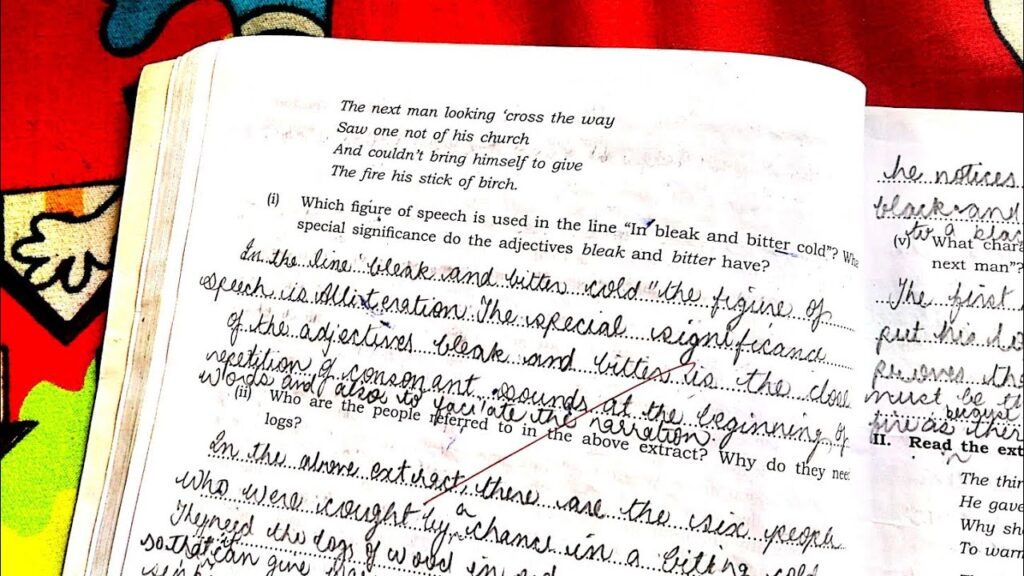 The next man looking 'cross the way
Saw one not of his church
And couldn't bring himself to give
The fire his stick of birch.
(i) Which figure of speech is used in the line "In bleak and bitter cold"? Wha
special significance do the adjectives bleak and bitter have?
In the line "bleak and bitten cold" the figure of
speech is Alliteration. The special significand
of the adjectives bleak and bitten is the close
repetition of consonant sounds at the beginning of
words and also to faci'ate the narration.
(ii) Who are the people referred to in the above extract? Why do they nee
logs?
In the above extract, there are the six people
who were caught by a chance in a biting cold
They need the logs of wood in
so that can give
he notices
black and
to a
(v) What chara
next man"?
The first
put his
proves tha
must be th
fire as ther
II. Read the ext
The thir
He gave
Why sh
To warm